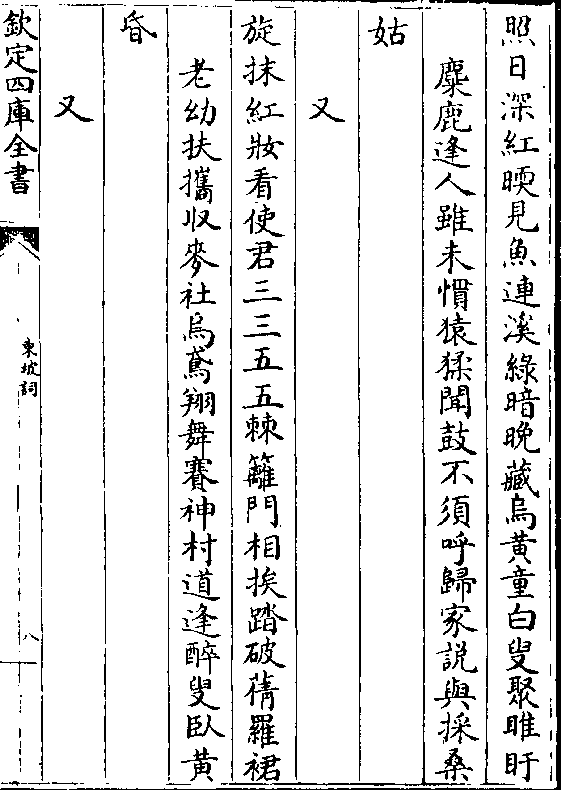 照日深紅暎見魚連溪綠暗晚藏烏黃童白叟聚睢盱
麋鹿逢人雖未慣猿猱聞鼓不須呼歸家說與採桑
姑
又
旋抹紅妝看使君三三五五棘籬門相挨踏破蒨羅裙
老幼扶攜収麥社烏鳶翔舞賽神村道逢醉叟臥黃
昏
又
欽定四庫全書
東坡詞
八